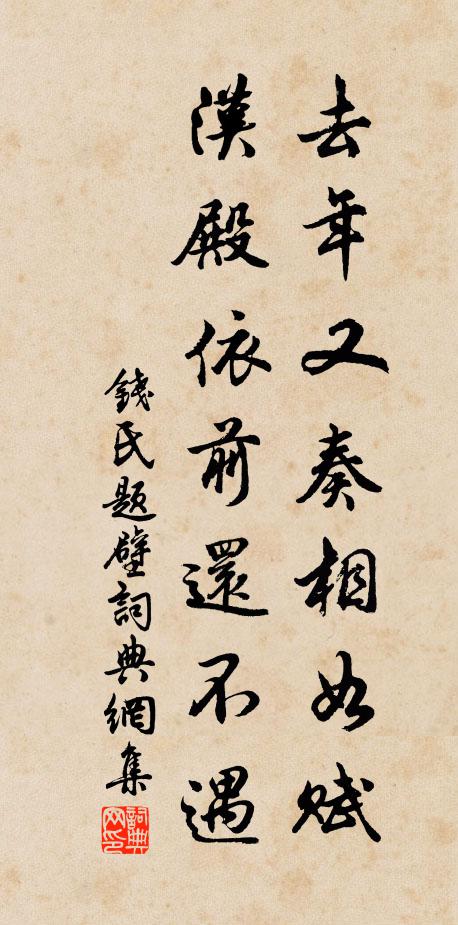 去年又奏相如賦
漢殿依前還不遇
錢氏題壁詞典網集
詞典网印